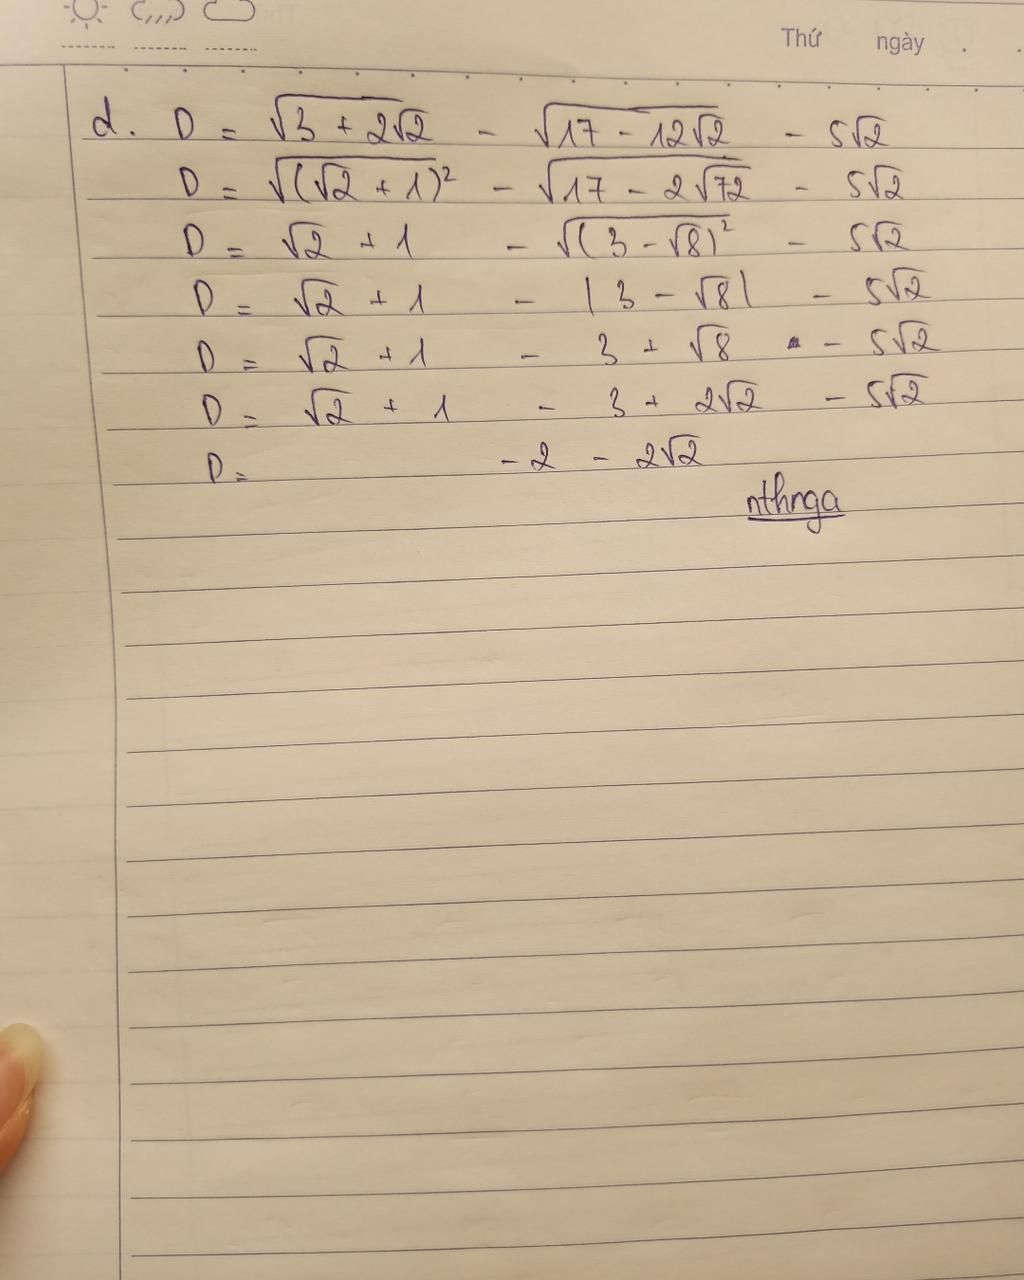 Thứ ngày .
d. D = √(3 + 2√2) - √(17 - 12√2) - 5√2
D = √((√2 + 1)²) - √(17 - 2√72) - 5√2
D = √2 + 1 - √((3 - √8)²) - 5√2
D = √2 + 1 - |3 - √8| - 5√2
D = √2 + 1 - 3 + √8 - 5√2
D = √2 + 1 - 3 + 2√2 - 5√2
D = - 2 - 2√2
nthnga